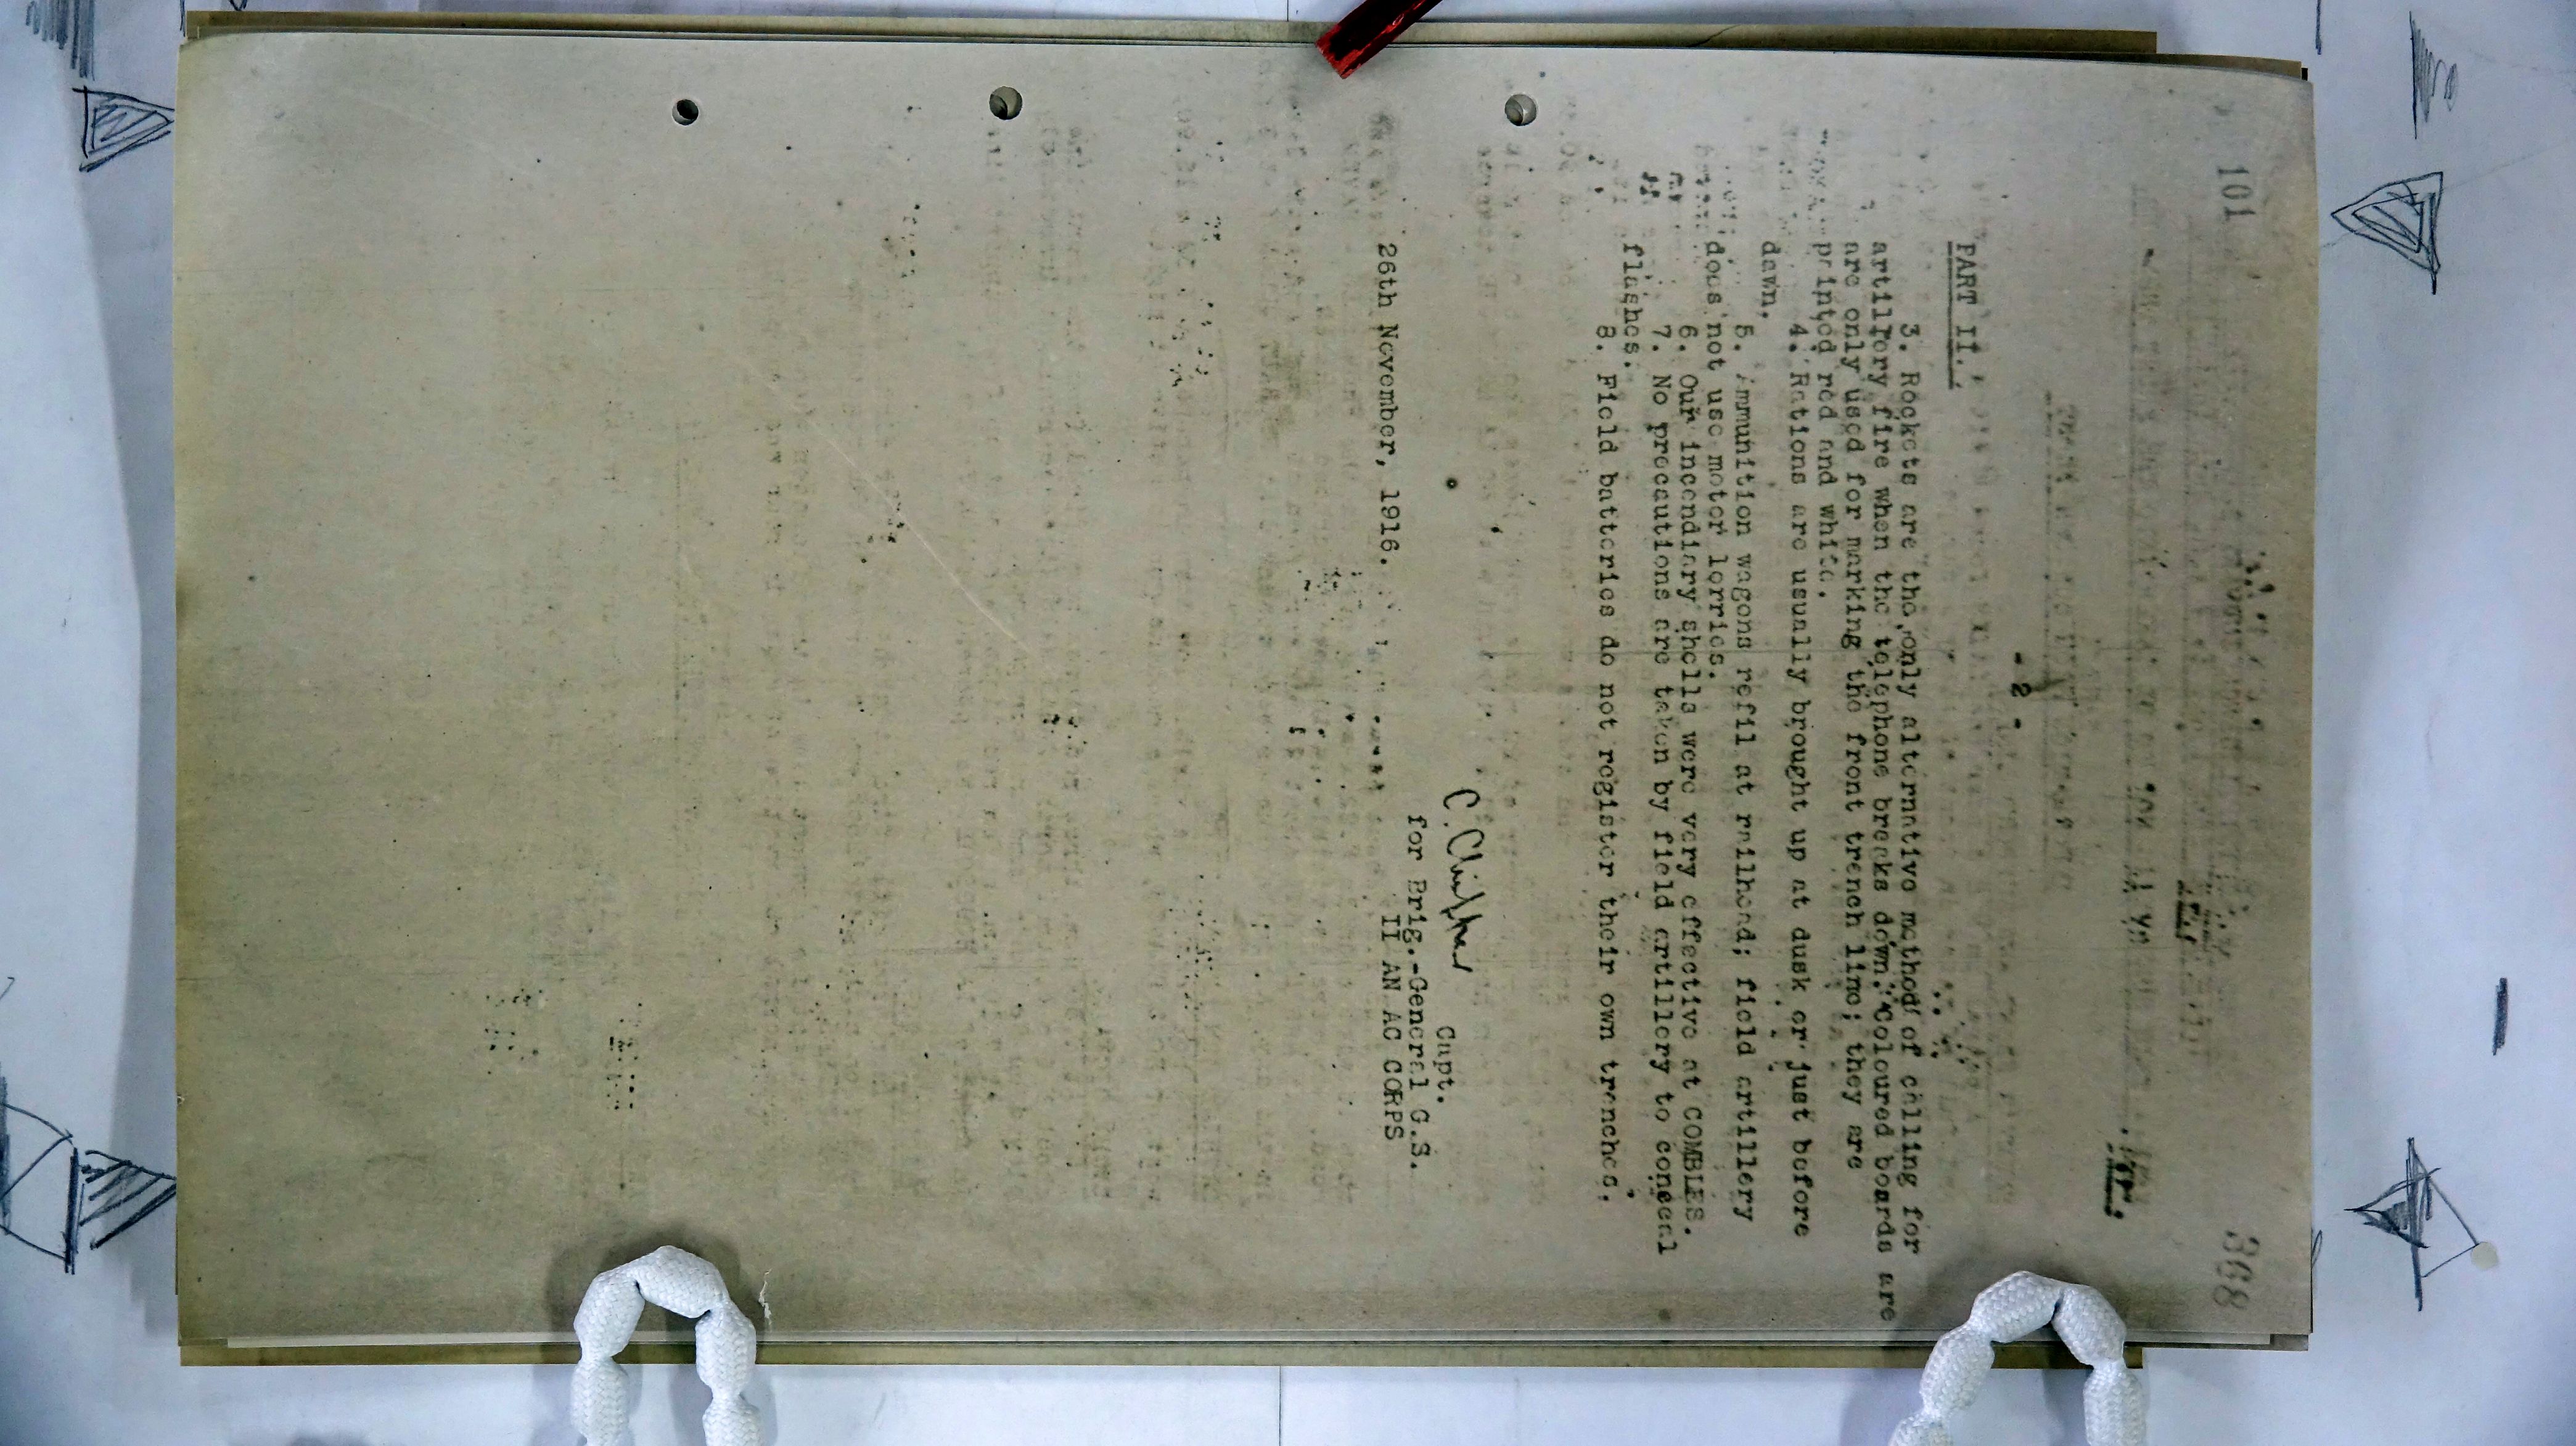 101
368
- 2 -
PART II.
3. Rockets are the only alternative method of calling for
artillery fire when the telephone breaks down. Coloured boards are
are only used for marking the front trench line; they are
printed red and white.
4. Rations are usually brought up at dusk or just before
dawn.
5. Ammunition wagons refil at railhead; field artillery
does not use motor lorries.
6. Our incendiary shells were very effective at COMBLES.
7. No precautions are taken by field artillery to conceal
flashes.
8. Field batteries do not register their own trenches.
Capt.
for Brig.-General G.S.
26th November, 1916. II AN AC CORPS